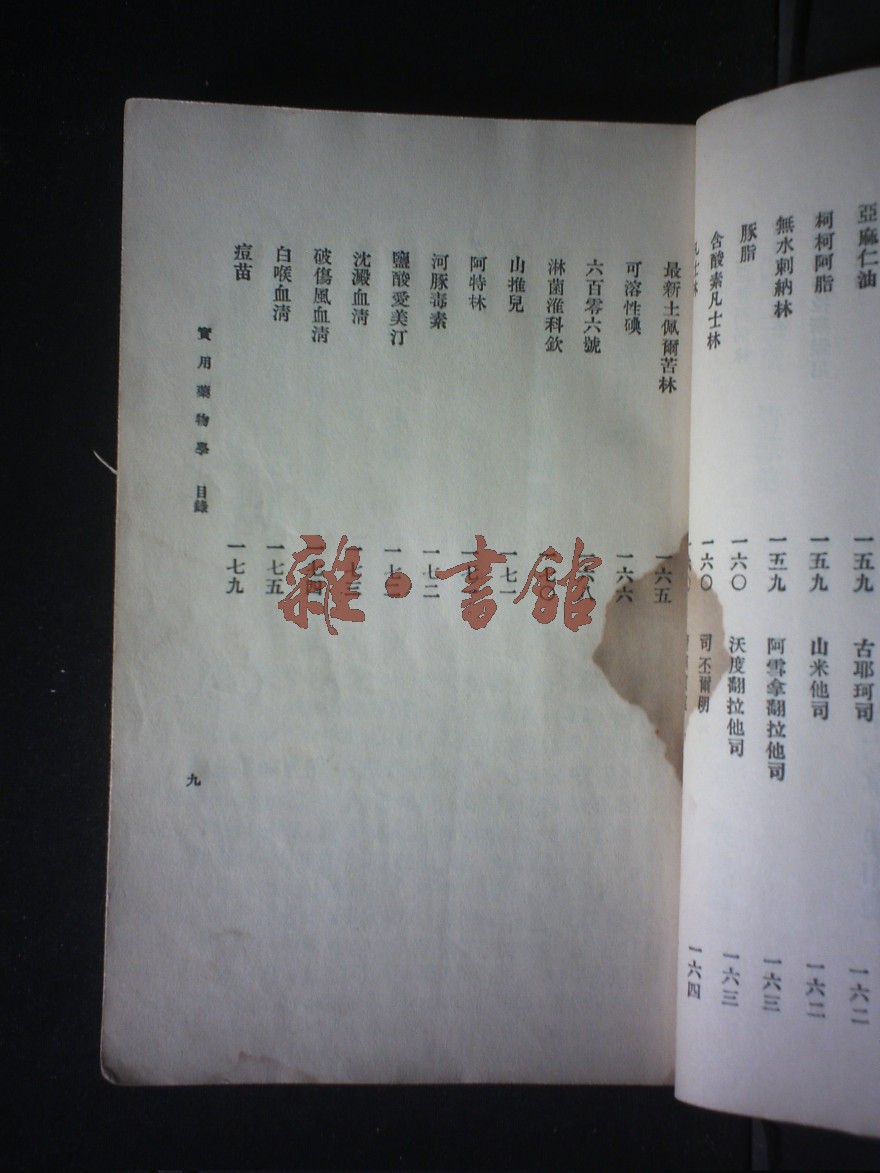 亞麻仁油 一五九
柯柯阿脂 一五九
無水刺納林 一五九
豚脂 一六〇
含酸素凡士林 一六〇
古耶珂司 一六二
山米他司 一六二
阿雪拿翻拉他司 一六三
沃度翻拉他司 一六三
司丕爾明 一六四
最新土佩爾苦林 一六五
可溶性碘 一六六
六百零六號 一六八
淋菌漼科欽 一七〇
山推兒 一七一
阿特林
河豚毒素 一七二
鹽酸愛美汀
沈澱血清
破傷風血清 一七四
白喉血清 一七五
痘苗 一七九
實用藥物學 目錄
九
雜·書館